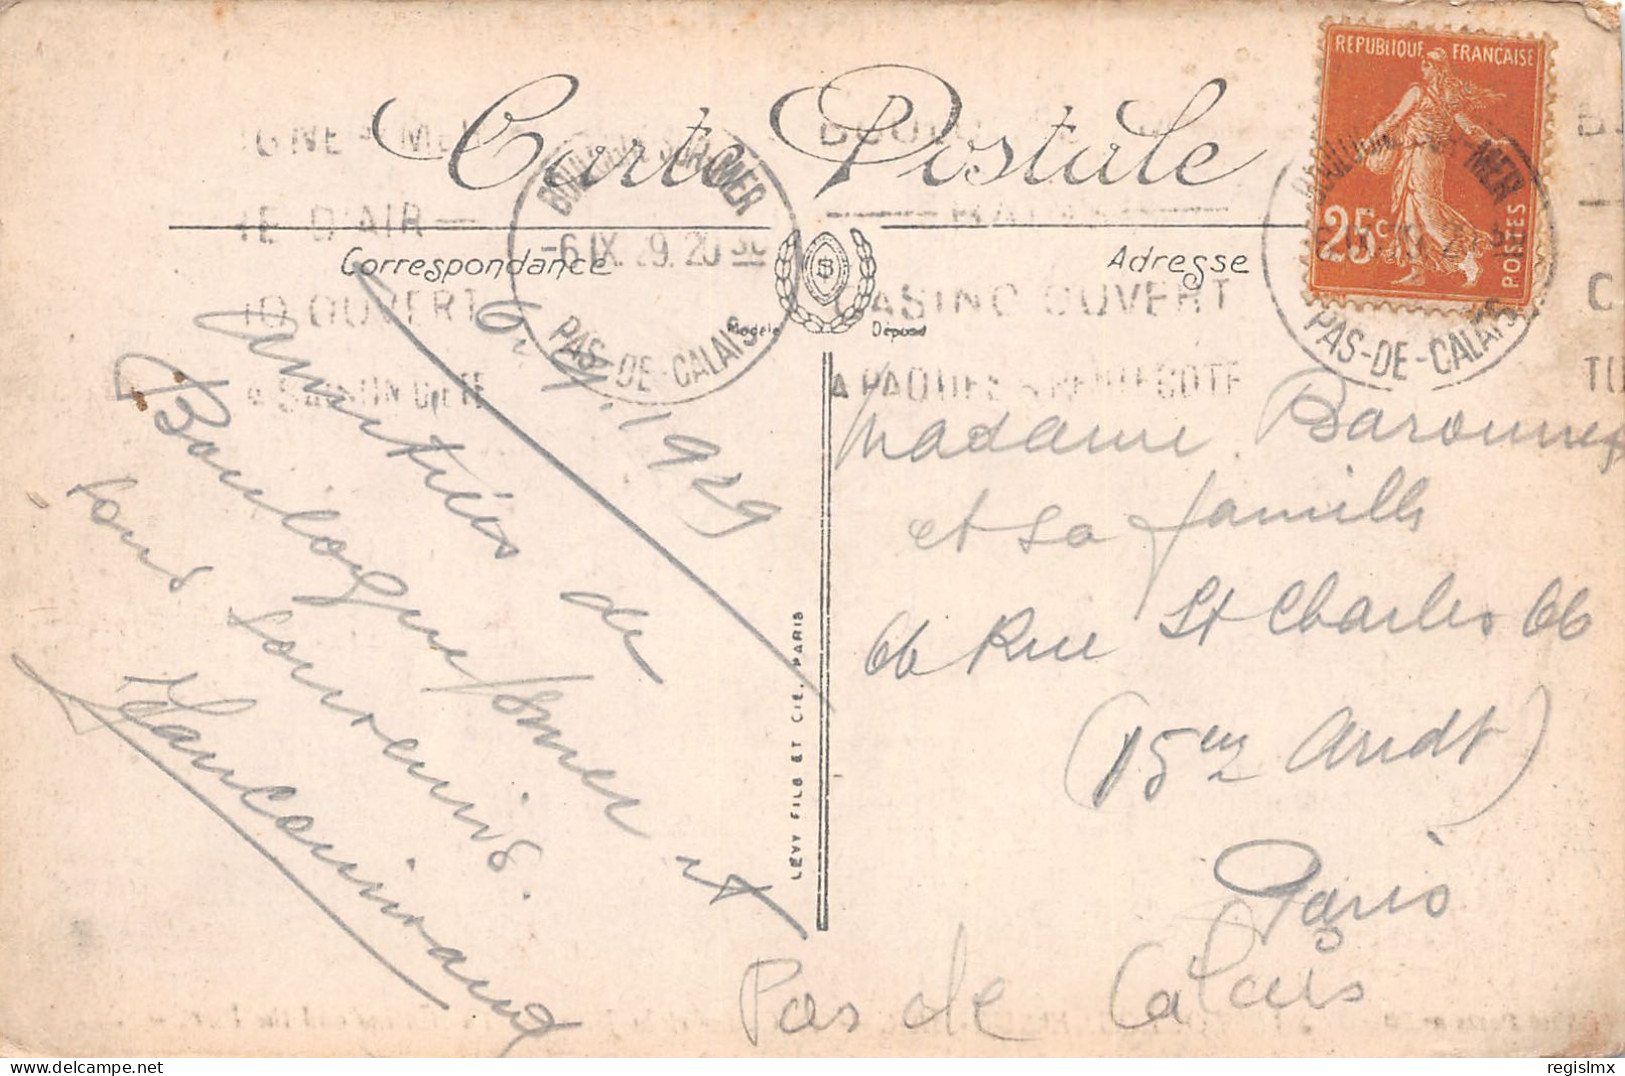 Carte Postale
RÉPUBLIQUE FRANÇAISE
25c
POSTES
BOULOGNE-SUR-MER
-6.IX.29.20 30
PAS-DE-CALAIS
BOULOGNE-SUR-MER
PAS-DE-CALAIS
IGNE-S-MER
TE D'AIR
NO OUVERT
CASINO OUVERT
A PAQUES & PENTECOTE
Correspondance
Adresse
Modèle
Déposé
LÉVY FILS ET CIE, PARIS
6. 9. 1929
Amitiés de
Boulogne s/mer et
tous souvenirs.
Madame Baronnet
et sa famille
66 Rue St Charles 66
(15em Arrdt)
Paris
Pas de Calais